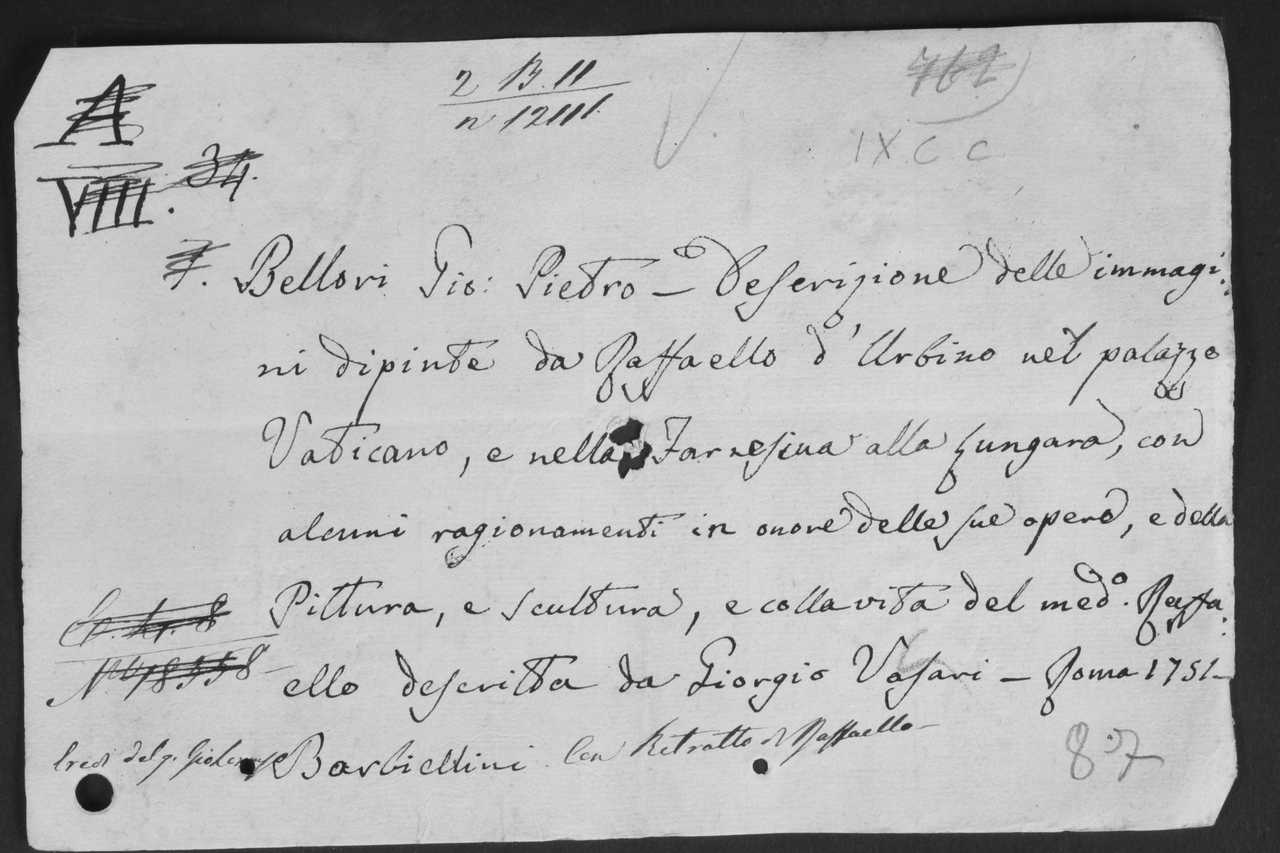 2 B. 11
n 12111.
762
IX C C
A
VIII. 34.
7. Bellori Gio: Pietro — Descrizione delle immagi:
ni dipinte da Raffaello d'Urbino nel palazzo
Vaticano, e nella Farnesina alla Lungara, con
alcuni ragionamenti in onore delle sue opere, e della
Pittura, e scultura, e colla vita del med.º Raffa:
ello descritta da Giorgio Vasari — Roma 1751 —
Barbiellini Con Ritratto di Raffaello —
87